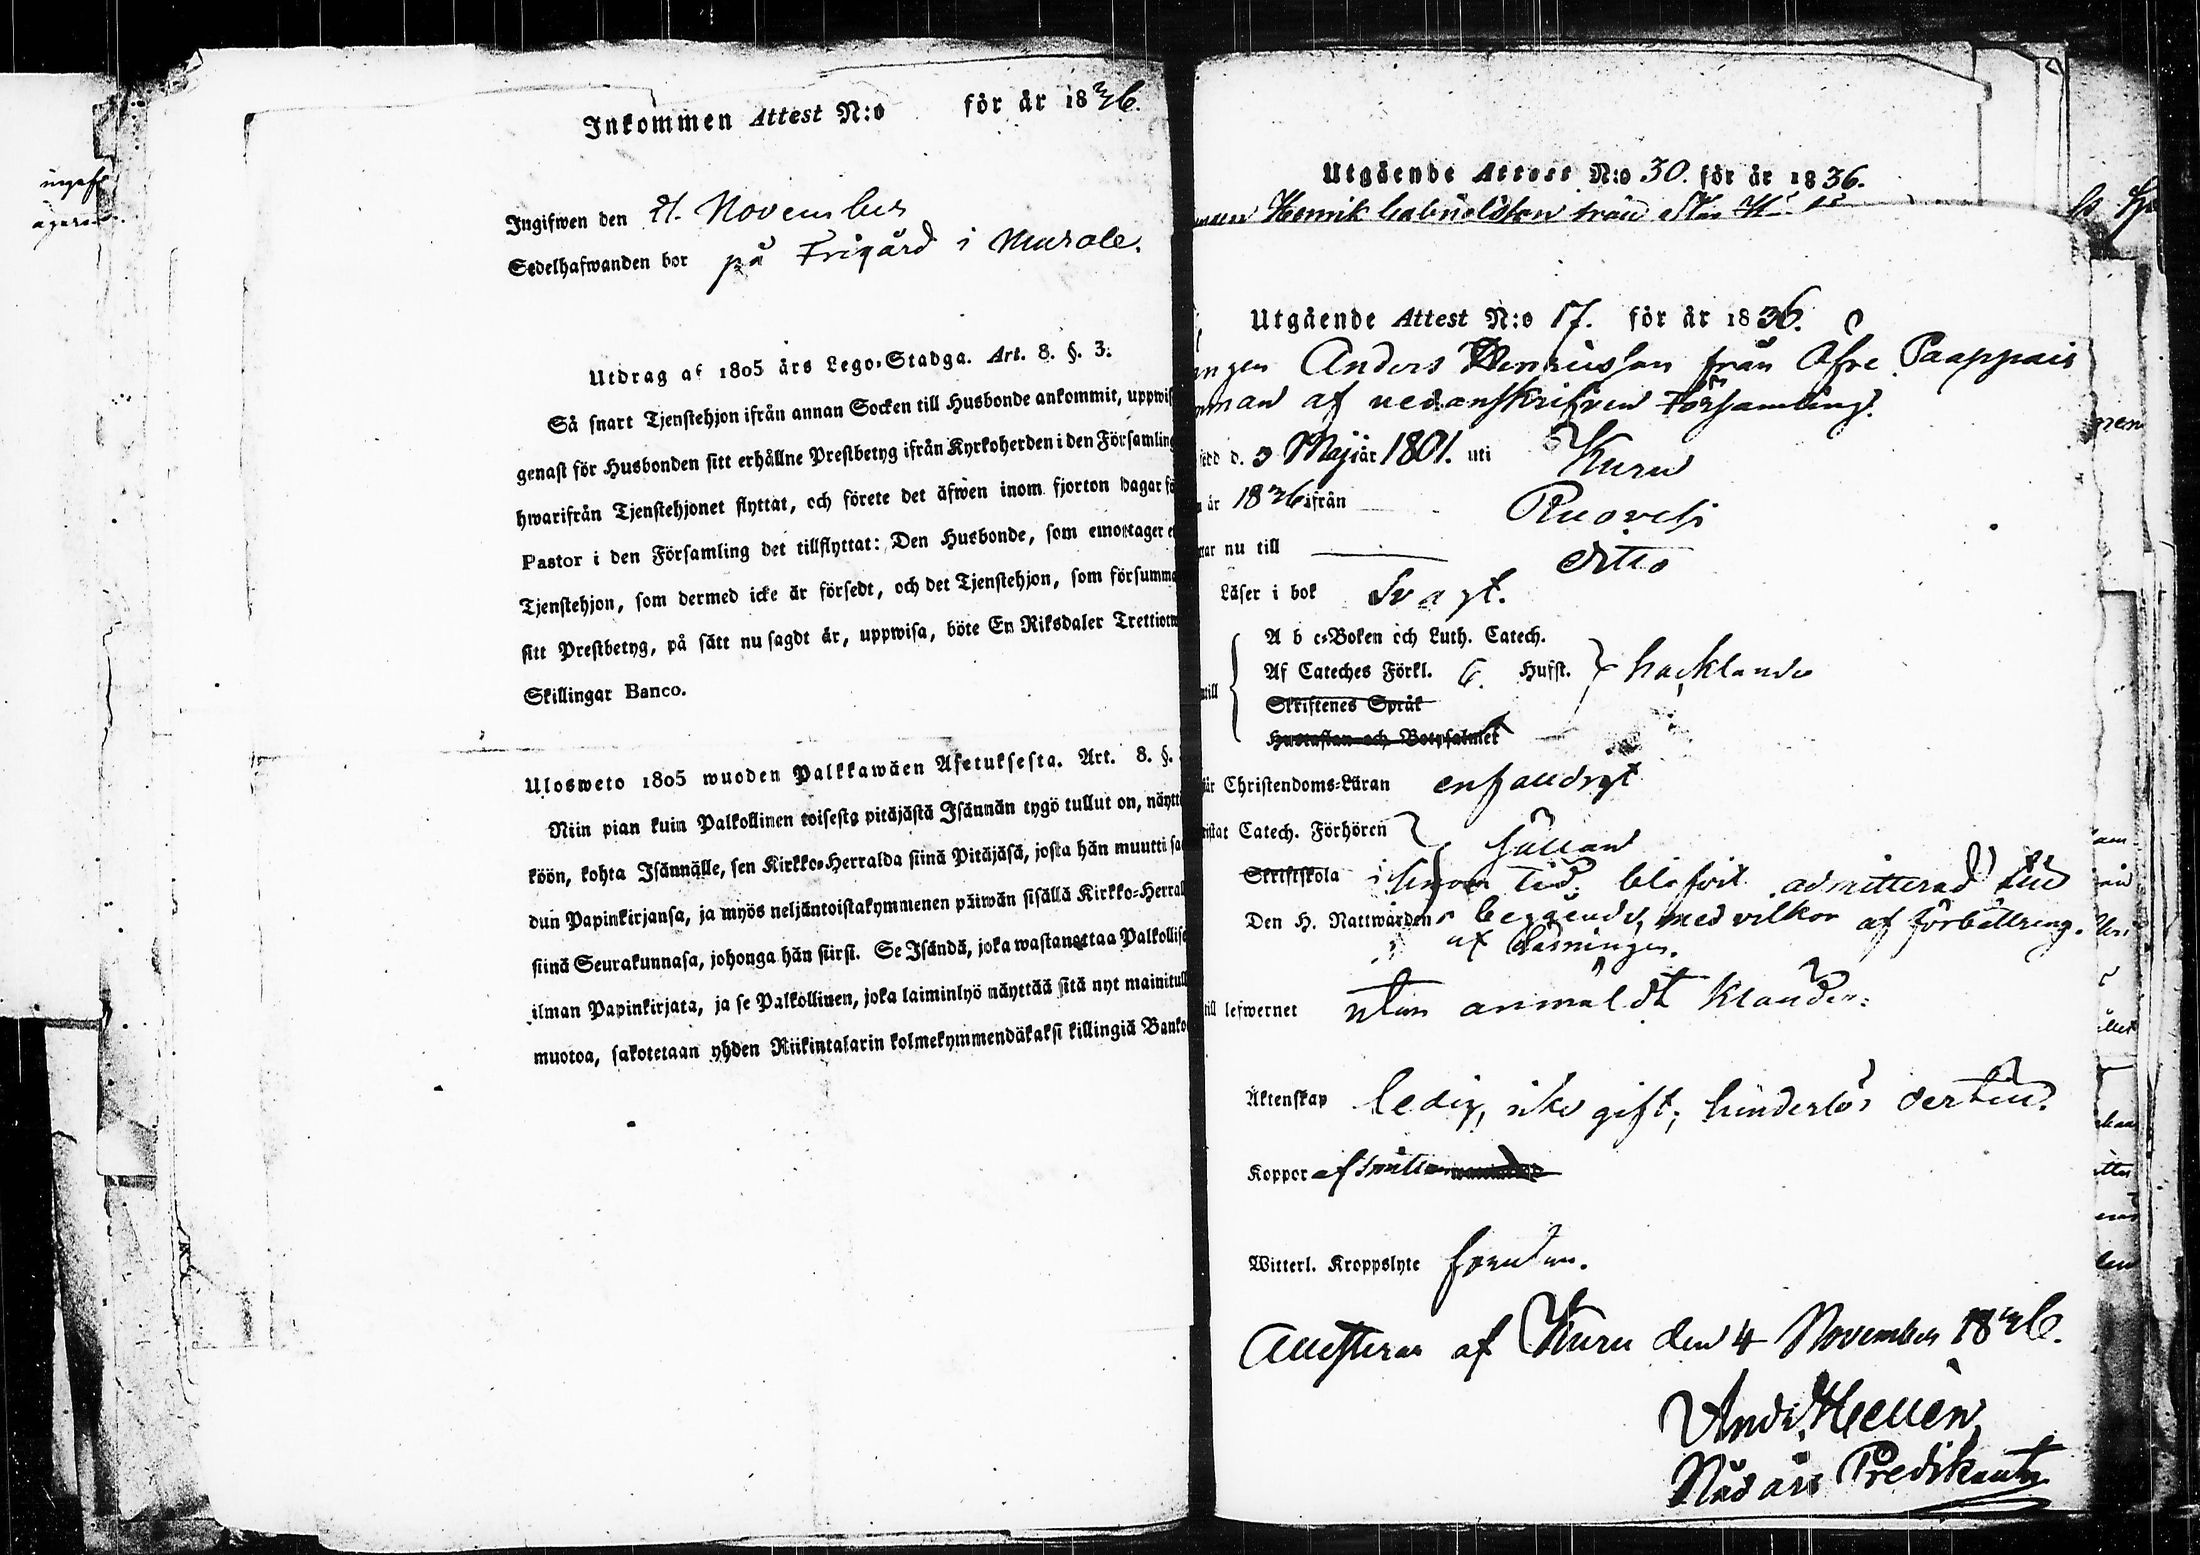 Inkommen Attest N:o för år 1836.
Ingifwen den 21. November
Sedelhafwanden bor på Frigård i Murole.
Utdrag af 1805 års Lego-Stadga. Art. 8. §. 3.
Så snart Tjenstehjon ifrån annan Socken till Husbonde ankommit, uppwis
genast för Husbonden sitt erhållne Prestbetyg ifrån Kyrkoherden i den Församling
hwarifrån Tjenstehjonet flyttat, och förete det äfwen inom fjorton dagar fö
Pastor i den Församling det tillflyttat: Den Husbonde, som emottager e
Tjenstehjon, som dermed icke är försedt, och det Tjenstehjon, som försumma
sitt Prestbetyg, på sätt nu sagdt är, uppwisa, böte En Riksdaler Trettiotw
Skillingar Banco.
Ulosweto 1805 wuoden Palkkawäen Asetuksesta. Art. 8. §.
Niin pian kuin Palkollinen toisesta pitäjästä Isännän tygö tullut on, näyttä
köön, kohta Isännälle, sen Kirkko-Herralda siinä Pitäjäsä, josta hän muutti sa
dun Papinkirjansa, ja myös neljäntoistakymmenen päiwän sisällä Kirkko-Herral
siinä Seurakunnasa, johonga hän siirsi. Se Isändä, joka wastanottaa Palkollise
ilman Papinkirjata, ja se Palkollinen, joka laiminlyö näyttää sitä nyt mainitull
muotoa, sakotetaan yhden Riikintalarin kolmekymmendäkaksi killingiä Banko
Utgående Attest N:o 30. för år 1836.
Henrik Gabrielsson från
Utgående Attest N:o 17. för år 1836.
ngen Anders Henriksson från Öfre Paappais
man af nedanskrifven Församling.
född d. 3 Maji år 1801. uti Kuru
år 1836 ifrån Ruovesi
rar nu till ditto
Läser i bok svagt.
A b c-Boken och Luth. Catech.
Af Cateches Förkl. 6. Hufst. hacklande
Skriftenes Språk
Hustaflan och Botpsalmer
Christendoms-Läran enfaldigt
istat Catech. Förhören sällan
Skriftskola i tid. blifvit admitterad till
Den H. Nattwarden begående, med vilkor af förbättring
af läsningen.
till lefwernet utan anmäldt klander.
Äktenskap ledig, icke gift; hinderlös dertill.
Koppor
Witterl. Kroppslyte förutan.
Attesteras af Kuru den 4 November 1836.
And. Hellén
Nådårs Predikant